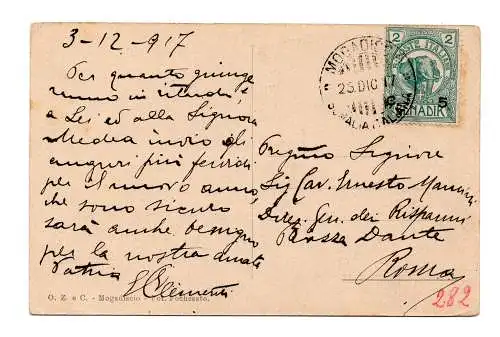 3-12-917
Per quanto giunge
ranno in ritardo, è
a Lei ed alla Signora
Medea invio gli
auguri più fervidi
per il nuovo anno,
che sono sicuro
sarà anche benigno
per la nostra amata
Patria
S Clementi
O. Z. e C. - Mogadiscio - Fot.
MOGADISCIO
25 DIC 17
SOMALIA ITALIANA
2 2
POSTE ITALIANE
C. 5
BENADIR
Pregmo Signore
Sig Cav. Ernesto
Direz. Gen. dei Risparmi
Piazza Dante
Roma
282